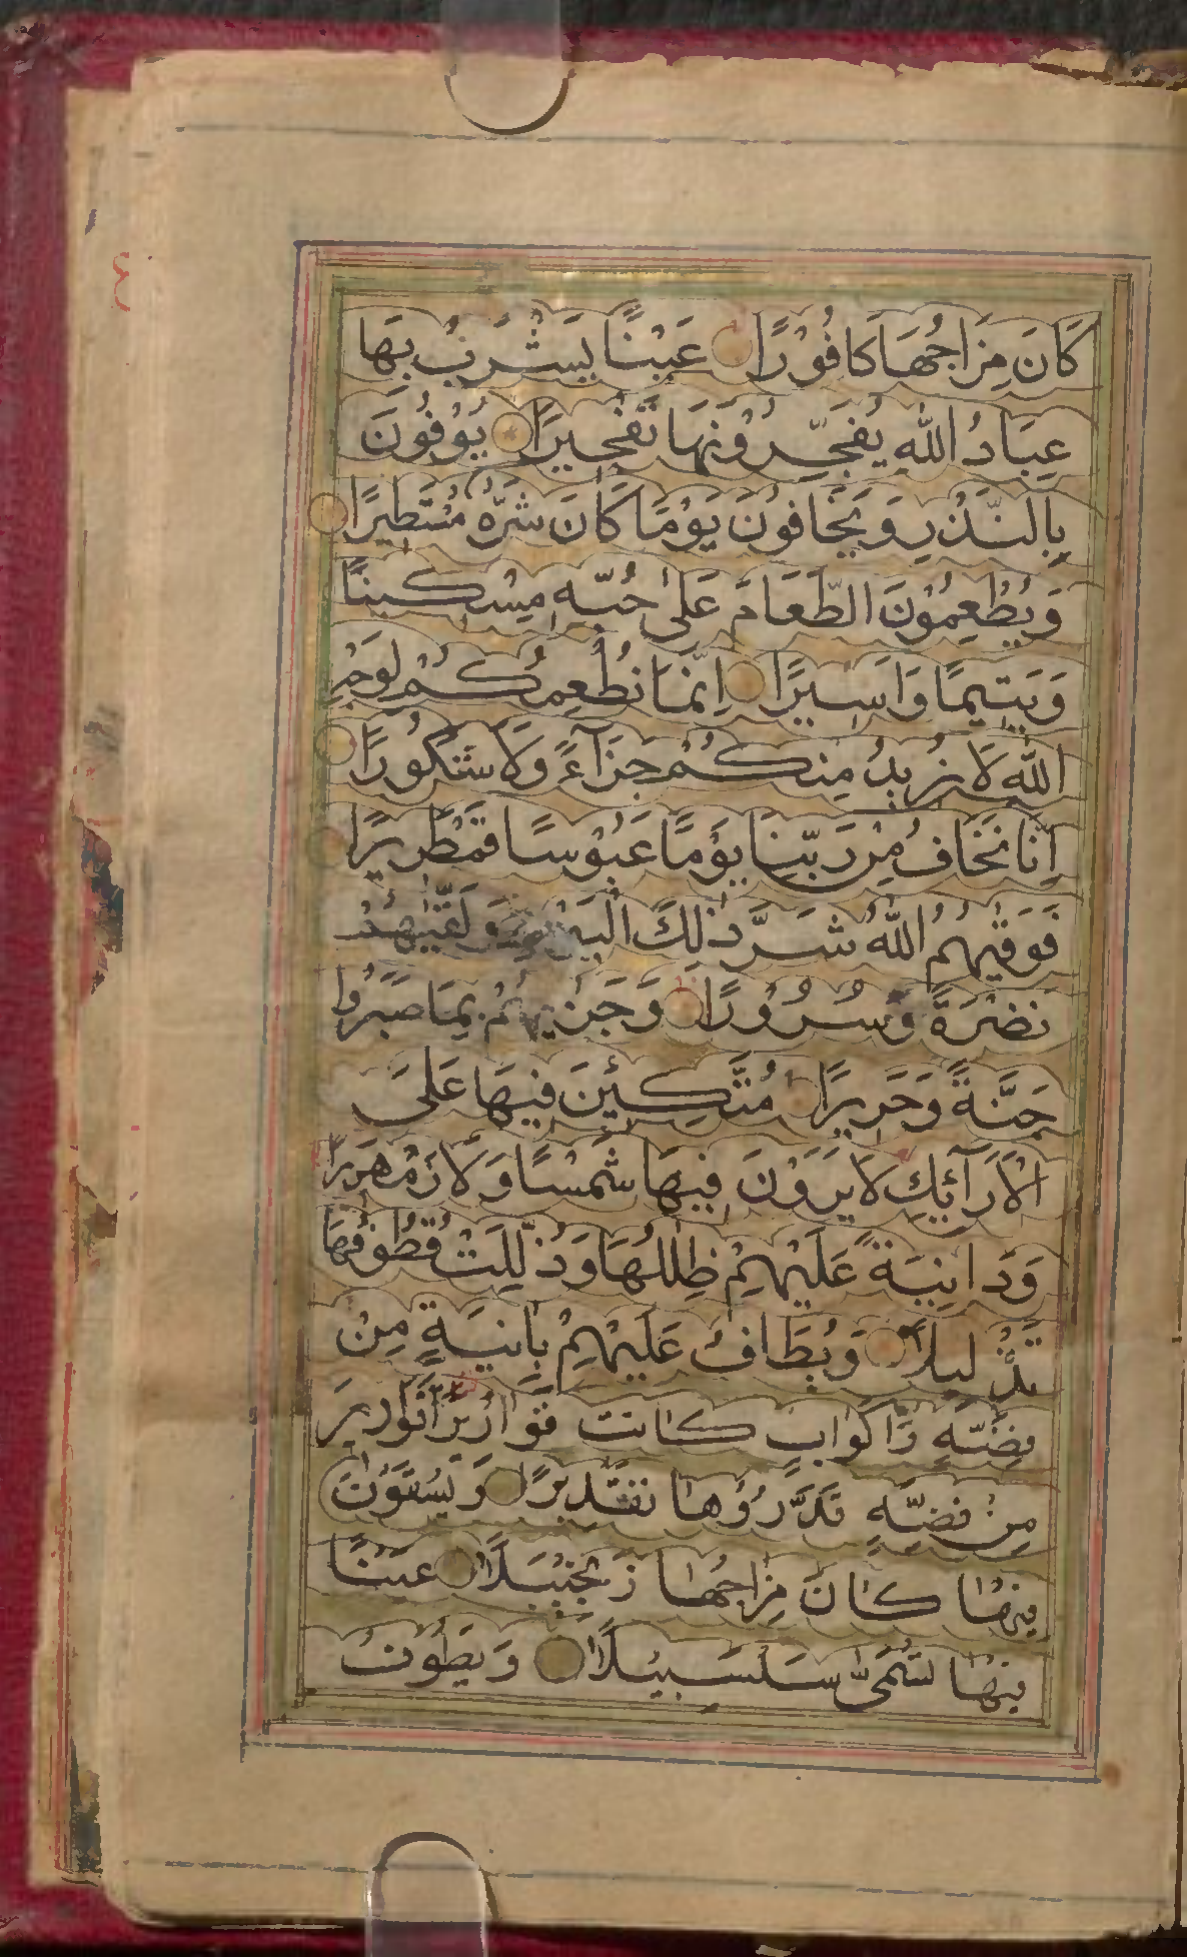 كَانَ مِزَاجُهَا كَافُوْرًا عَيْنًا يَشْرَبُ بِهَا
عِبَادُ اللّٰهِ يُفَجِّرُوْنَهَا تَفْجِيرًا يُوْفُوْنَ
بِالنَّذْرِ وَيَخَافُوْنَ يَوْمًا كَانَ شَرُّهٗ مُسْتَطِيرًا
وَيُطْعِمُوْنَ الطَّعَامَ عَلٰى حُبِّهٖ مِسْكِينًا
وَيَتِيمًا وَاَسِيرًا اِنَّمَا نُطْعِمُكُمْ لِوَجْهِ
اللّٰهِ لَا نُرِيدُ مِنْكُمْ جَزَآءً وَلَا شُكُورًا
اِنَّا نَخَافُ مِنْ رَبِّنَا يَوْمًا عَبُوْسًا قَمْطَرِيرًا
فَوَقٰيهُمُ اللّٰهُ شَرَّ ذٰلِكَ الْيَوْمِ وَلَقّٰيهُمْ
نَضْرَةً وَسُرُوْرًا وَجَزٰيهُمْ بِمَا صَبَرُوا
جَنَّةً وَحَرِيرًا مُتَّكِئِينَ فِيهَا عَلَى
الْاَرَآئِكِ لَا يَرَوْنَ فِيهَا شَمْسًا وَلَا زَمْهَرِيرًا
وَدَانِيَةً عَلَيْهِمْ ظِلٰلُهَا وَذُلِّلَتْ قُطُوْفُهَا
تَذْلِيلًا وَيُطَافُ عَلَيْهِمْ بِاٰنِيَةٍ مِنْ
فِضَّةٍ وَاَكْوَابٍ كَانَتْ قَوَارِيرَا قَوَارِيرَ
مِنْ فِضَّةٍ قَدَّرُوْهَا تَقْدِيرًا وَيُسْقَوْنَ
فِيْهَا كَانَ مِزَاجُهَا زَنْجَبِيْلًا عَيْنًا
فِيْهَا تُسَمّٰى سَلْسَبِيْلًا وَيَطُوْفُ
٤